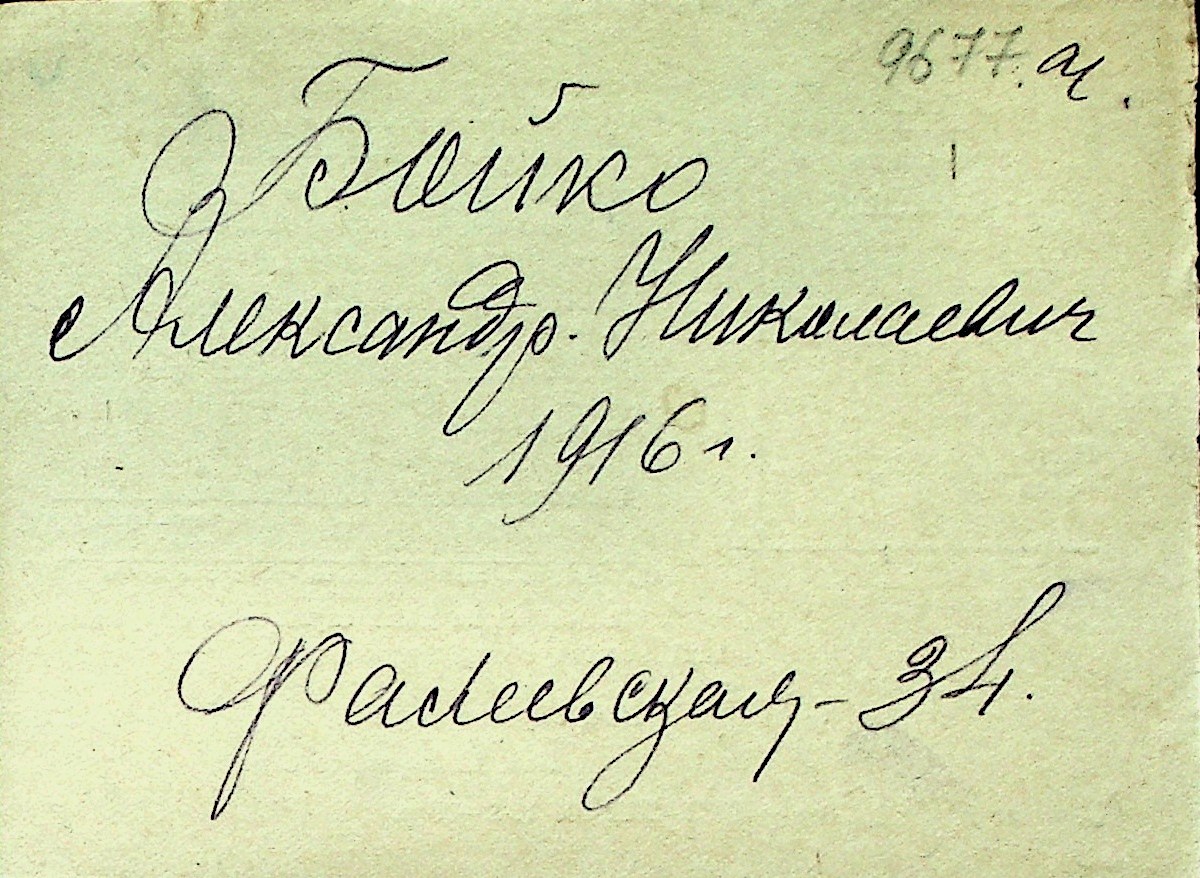 9677.
Бойко
Александр. Николаевич
1916 г.
Фалеевская - 34.